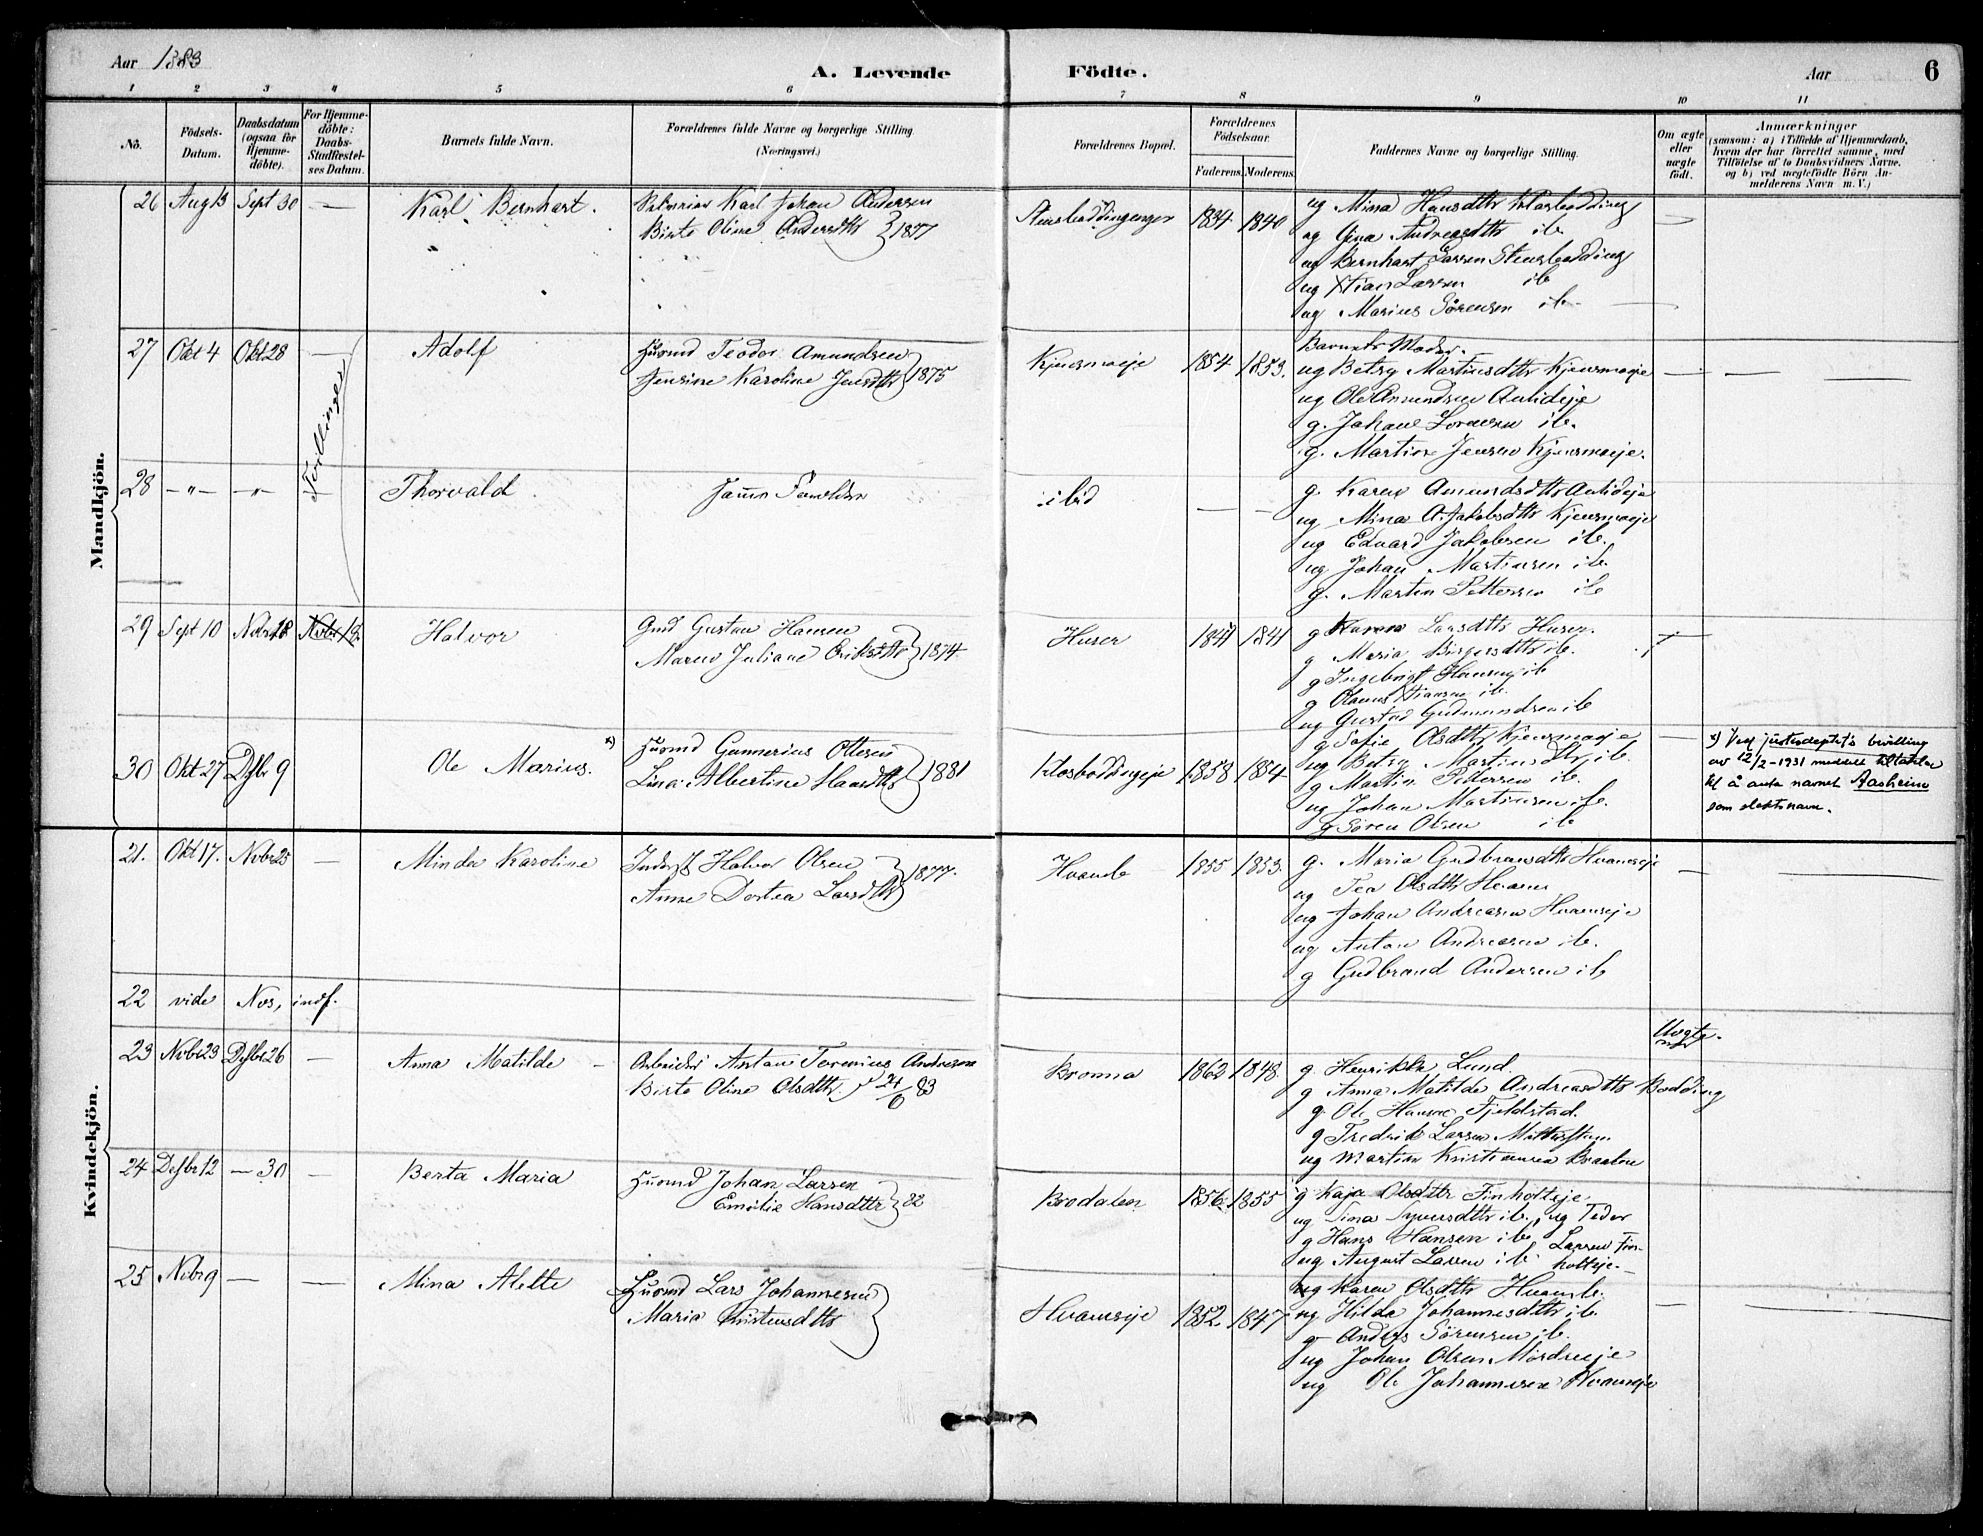 Aar 1883
A. Levende
Födte.
Aar
6
1 2 3 4 5 6 7 8 9 10 11
No.
Födsels-Datum.
Daabsdatum (ogsaa for Hjemme-döbte).
For Hjemme-döbte: Daabs-Stadfæstel-ses Datum.
Barnets fulde Navn.
Forældrenes fulde Navne og borgerlige Stilling.
(Næringsvei.)
Forældrenes Bopæl.
Forældrenes Födselsaar.
Faderens. Moderens.
Faddernes Navne og borgerlige Stilling.
Om ægte eller uægte födt.
Anmærkninger
(saasom: a) i Tilfælde af Hjemmedaab,
hvem der har forrettet samme, med
Tilföielse af to Daabsvidners Navne,
og b) ved uægtefödte Börn An-
melderens Navn m. V.)
Mandkjön.
26 Aug 13 Sept 30 — Karl Bernhart.
Karl Johan Andersen
Birte Oline Andersdtr } 1877
1834 1840
ug Mina Hansdtr Klosbødding
ug Gina Andreasdtr ib
ug Bernhart Larsen Stensbødding
ug Xtian Larsen ib
ug Marius Sørensen ib —
27 Okt 4 Okt 28 — Adolf
Tvillinger
Huusmd Teodor Amundsen
Jensine Karoline Jensdtr } 1875
Kjensmoeje 1854 1853.
Barnets Moder.
ug Betsy Martinsdtr Kjensmoeje — — —
ug Ole Amundsen Aulideje
g. Johan Lorensen ib.
g. Martin Jensen Kjensmoeje.
28 —"— —"— Thorvald.
Samme Forældre
ibid — —
g. Karen Amundsdtr Aulideje
ug Mina A. Jakobsdtr Kjensmoeje
ug Edvard Jakobsen ib.
ug Johan Martinsen ib.
g. Martin Pettersen ib
29 Sept 10 Nvbr 18 Nvbr 18. Halvor
Gmd Gustav Hansen
Maren Juliane Eriksdtr } 1874
Huser 1841 1841
g Karen Larsdtr Huser.
g Maria Birgersdtr ib.
g Ingebrigt Hansen ib
g Olaus Hansen ib.
ug Gustav Gudmundsen ib
30 Okt 27 Dsbr 9 Ole Marius. x)
Huusmd Gunnerius Ottesen
Lina Albertine Haardtr } 1881
Klosbøddingeje 1858 1854
g Sofie Olsdtr Kjensmoeje —
ug Betsy Martinsdtr ib.
g Martin Pettersen ib.
ug Johan Martinsen ib.
g Søren Olsen ib
x) Ved justisdeptets bevilling
av 12/2-1931 meddelt tillatelse
til å anta navnet Aasheim
som slektsnavn.
Kvindekjön.
21. Okt 17. Nvbr 25 — Minda Karoline
Inderst Halvor Olsen
Anne Dortea Larsdtr } 1877.
Hvamb 1855 1853.
g. Maria Gudbransdtr Hvamseje
ug Tea Olsdtr Hvam
ug Johan Andreasen Hvamseje
ug Anton Andreasen ib.
g Gudbrand Andersen ib
22 vide Nos, indf.
23 Nvbr 23 Dsbr 26 — Anna Matilde —
Arbeider Anton Andresen
Birte Oline Olsdtr. 24/6 83
Bromma 1862 1848.
Uægte.
g Henrikke Lund.
g Anna Matilde Andreasdtr Bødding
g. Ole Hansen Fjeldstad.
g Fredrik Larsen
ug Martin Kristiansen Braaten
24 Dsbr 12 — 30 — Berta Maria
Huusmd Johan Larsen
Emilie Hansdtr } 82
Brodalen 1856. 1855
g Kaja Olsdtr Finholteje.
ug Sina Syversdtr ib, ug Teder
g Hans Hansen ib Larsen Fin-
ug August Larsen ib holteje. —
25 Nvbr 9 — — Mina Alette
Huusmd Lars Johannesen
Maria Kristensdtr }
Hvamseje 1852. 1847.
ug Karen Olsdtr Hvamb.
ug Hilda Johannesdtr ib. — —
g Anders Sørensen ib.
ug Johan Olsen Mordreeje
ug Ole Johannesen Hvamseje